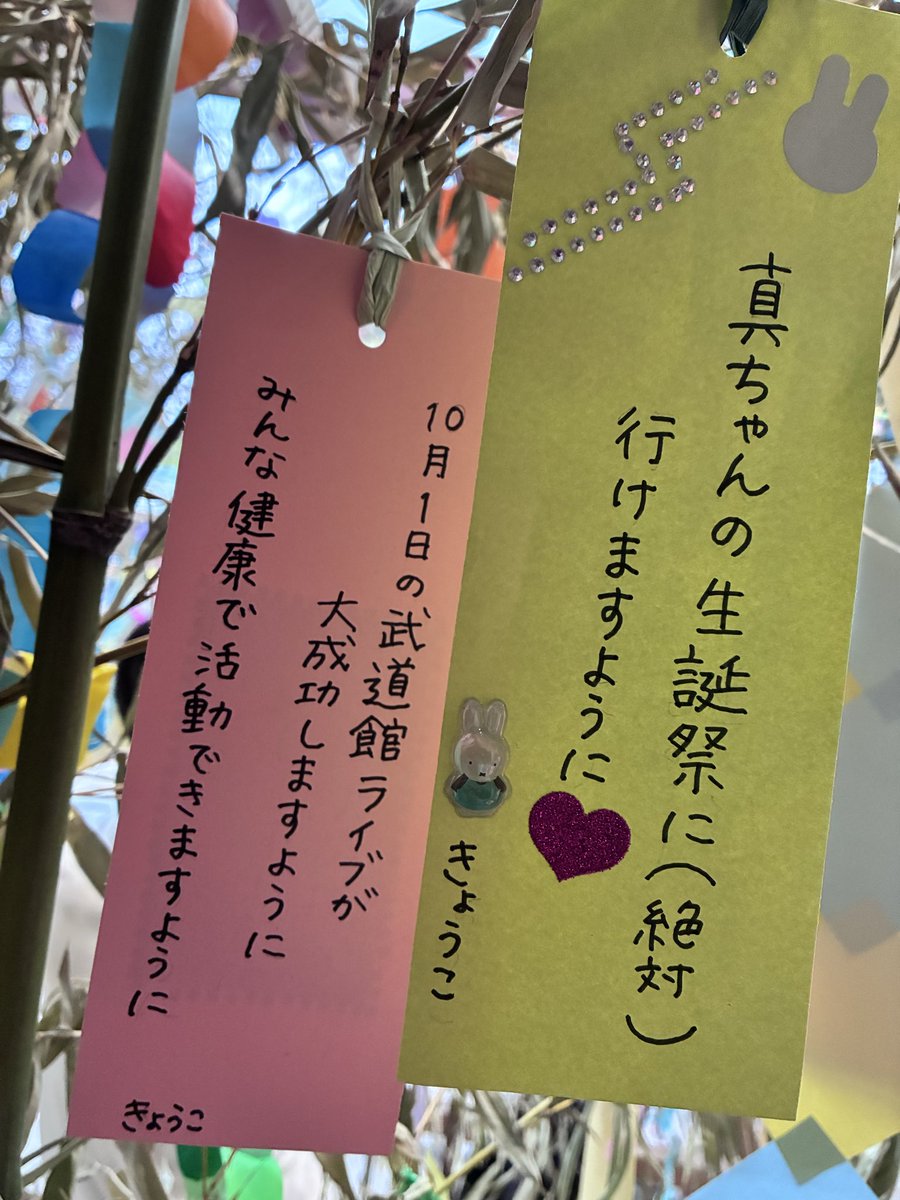 真ちゃんの生誕祭に(絶対)
行けますように
きょうこ
10月1日の武道館ライブが
大成功しますように
みんな健康で活動できますように
きょうこ